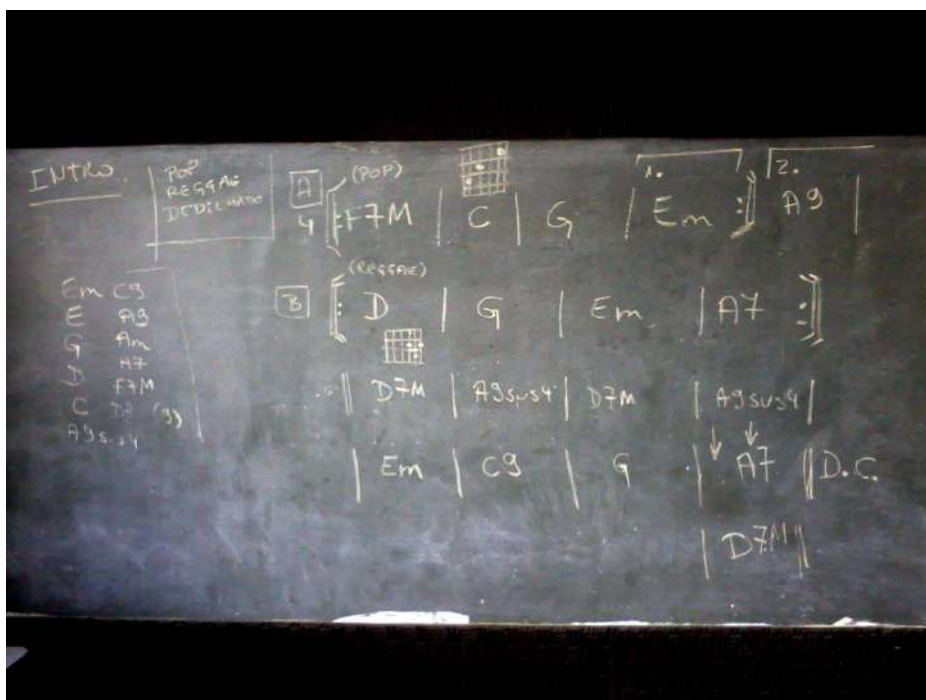 INTRO.
POP
REGGAE
DEDILHADO
Em C9
E A9
G Am
D A7
F7M
C (9)
A9sus4
A (POP) 1. 2.
4 ‖: F7M | C | G | Em :‖ A9 |
B (REGGAE)
‖: D | G | Em | A7 :‖
‖ D7M | A9sus4 | D7M | A9sus4 |
↓ ↓
| Em | C9 | G | A7 ‖ D.C.
| D7M ‖